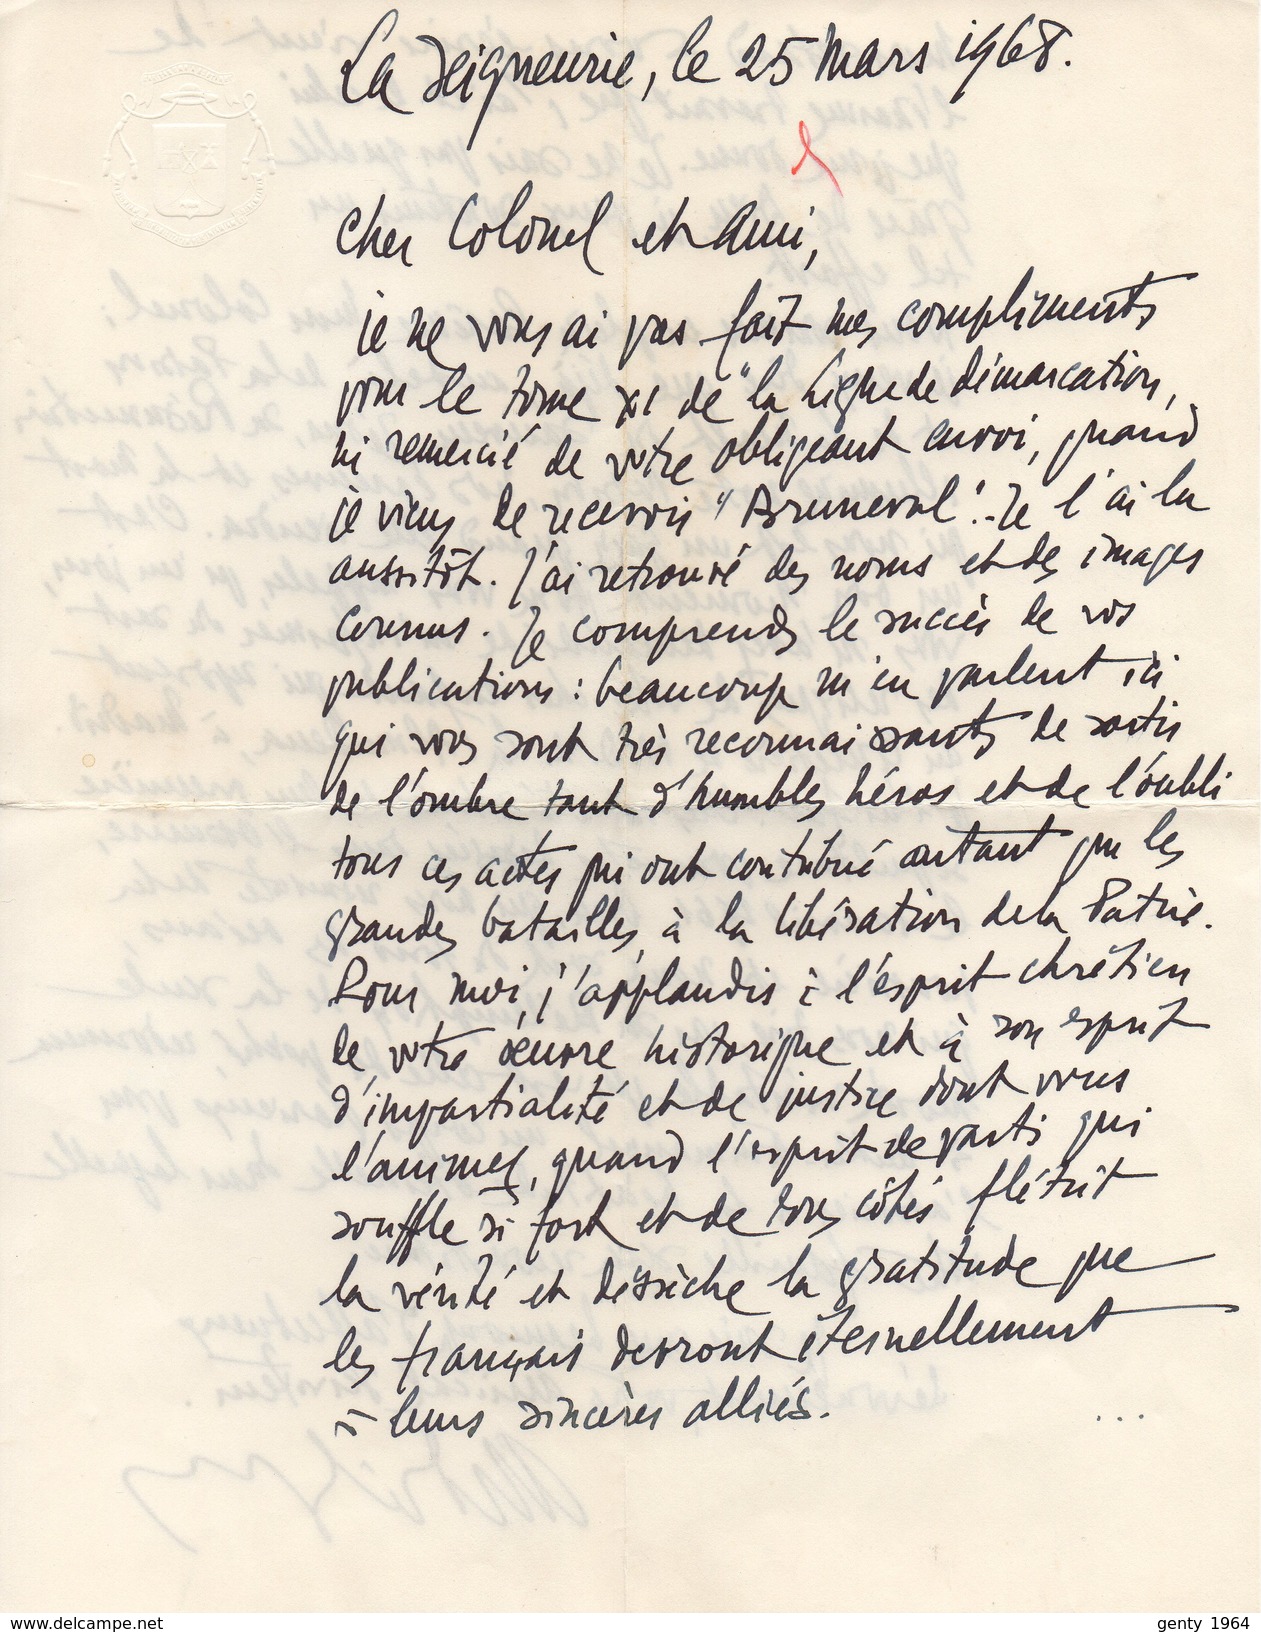 La Seigneurie, le 25 Mars 1968.
Cher Colonel et Ami,
je ne vous ai pas fait mes compliments
pour le tome XI de "la Ligne de démarcation,
ni remercié de votre obligeant envoi, quand
je viens de recevoir "Bruneval". Je l'ai lu
aussitôt. J'ai retrouvé des noms et des images
connus. Je comprends le succès de vos
publications : beaucoup m'en parlent ici,
qui vous sont très reconnaissants de sortir
de l'ombre tant d'humbles héros et de l'oubli
tous ces actes qui ont contribué autant que les
grandes batailles, à la libération de la Patrie.
Pour moi, j'applaudis à l'esprit chrétien
de votre œuvre historique et à son esprit
d'impartialité et de justice dont vous
l'animez, quand l'esprit de parti qui
souffle si fort et de tous côtés flétrit
la vérité et déssèche la gratitude que
les français devront éternellement
à leurs sincères alliés.
...
www.delcampe.net
genty 1964